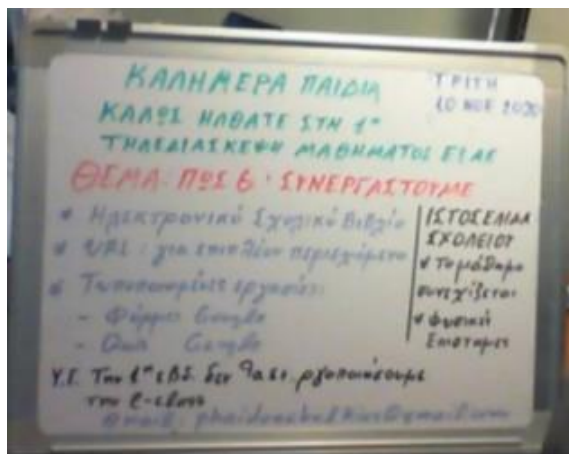 ΚΑΛΗΜΕΡΑ ΠΑΙΔΙΑ
ΤΡΙΤΗ
10 ΝΟΕ 2020
ΚΑΛΩΣ ΗΛΘΑΤΕ ΣΤΗ 1η
ΤΗΛΕΔΙΑΣΚΕΨΗ ΜΑΘΗΜΑΤΟΣ
ΘΕΜΑ: ΠΩΣ ΘΑ ΣΥΝΕΡΓΑΣΤΟΥΜΕ
* Ηλεκτρονικό Σχολικό Βιβλίο
* URL: για επιπλέον περιεχόμενο
* Τυποποιημένες εργασίες:
- Φόρμες Google
- Quiz Google
ΙΣΤΟΣΕΛΙΔΑ
ΣΧΟΛΕΙΟΥ
* Το μάθημα
συνεχίζεται
* Φυσικές
Επιστήμες
Υ.Γ. Την 1η εβδ. δεν θα
την e-class
email: